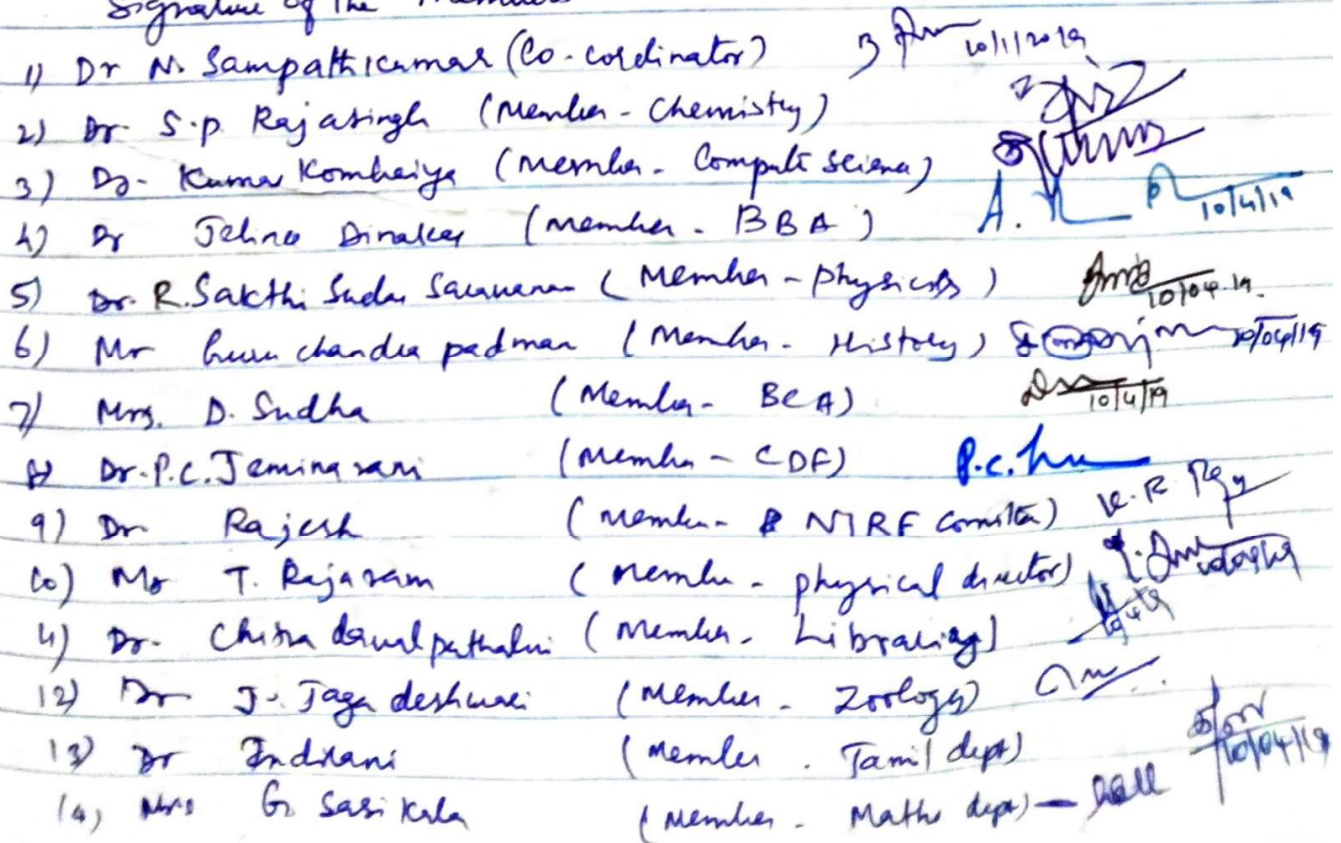 Signature of the Members
1) Dr N. Sampathkumar (Co-cordinator) 10/1/2019
2) Dr. S.P Rajasingh (Member - Chemistry)
3) Dr. Kumar Kombaiya (Member - Compute Science)
4) Dr Jelina Dinakar (Member - BBA) A. 10/4/19
5) Dr. R. Sakthi Sudar Saravanan (Member - physics) 10/04/19.
6) Mr Guru chandra padman (Member - History) 10/04/19
7) Mrs. D. Sudha (Member - BCA) 10/4/19
8) Dr. P.C. Jemina rani (Member - CDF) P.C.
9) Dr Rajesh (Member - NIRF Comitte) K.R
10) Mr T. Rajaram (Member - physical director) 10/04/19
11) Dr. Chitra (Member - Librarian)
12) Dr J. Jagadeshwari (Member - Zoology)
13) Dr Indirani (Member - Tamil dept) 10/04/19
14) Mrs G. Sasi Kala (Member - Maths dept) -